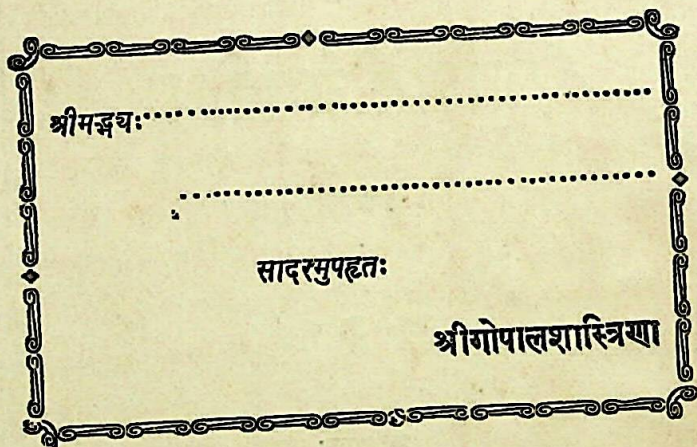 श्रीमद्भ्यः........................................................
........................................................
सादरमुपहृतः
श्रीगोपालशास्त्रिणा